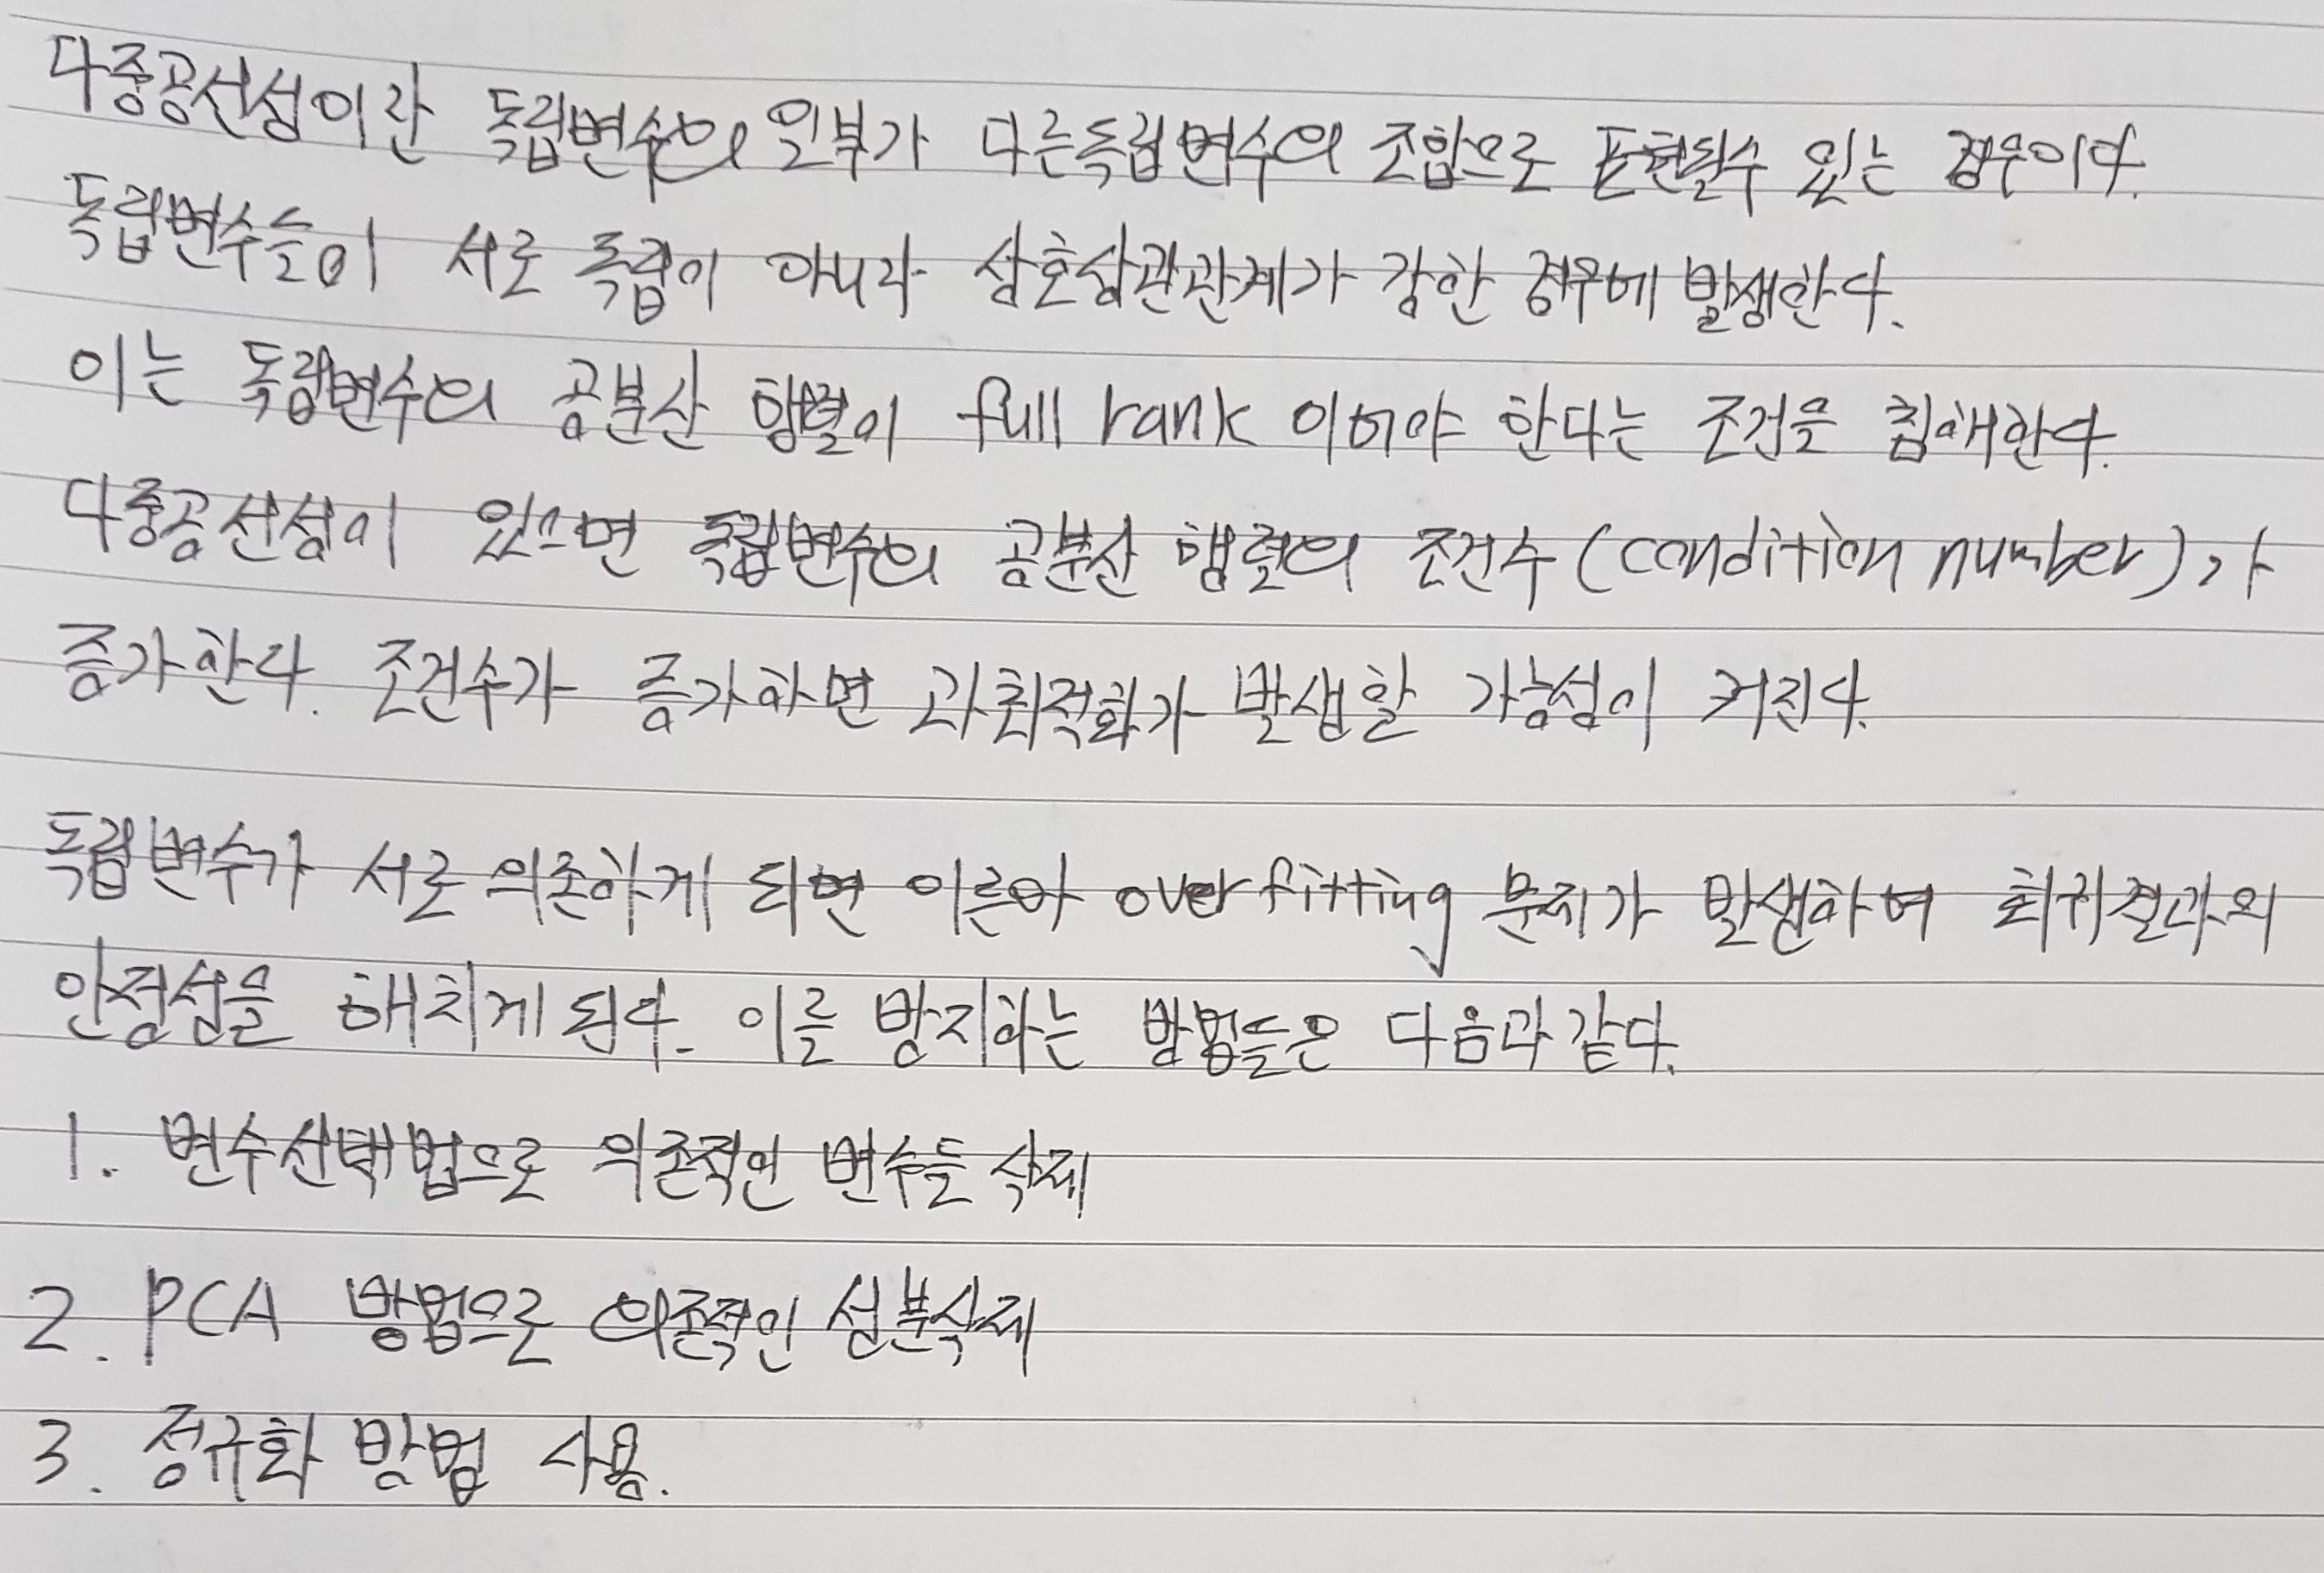 다중공선성이란 독립변수의 일부가 다른독립변수의 조합으로 표현될수 있는 경우이다.
독립변수들이 서로 독립이 아니라 상호상관관계가 강한 경우에 발생한다.
이는 독립변수의 공분산 행렬이 full rank 이어야 한다는 조건을 침해한다.
다중공선성이 있으면 독립변수의 공분산 행렬의 조건수(condition number)가
증가한다. 조건수가 증가하면 과최적화가 발생할 가능성이 커진다.
독립변수가 서로 의존하게 되면 이른바 over fitting 문제가 발생하여 회귀결과의
안정성을 해치게 된다. 이를 방지하는 방법들은 다음과 같다.
1. 변수선택법으로 의존적인 변수들 삭제
2. PCA 방법으로 의존적인 성분삭제
3. 정규화 방법 사용.